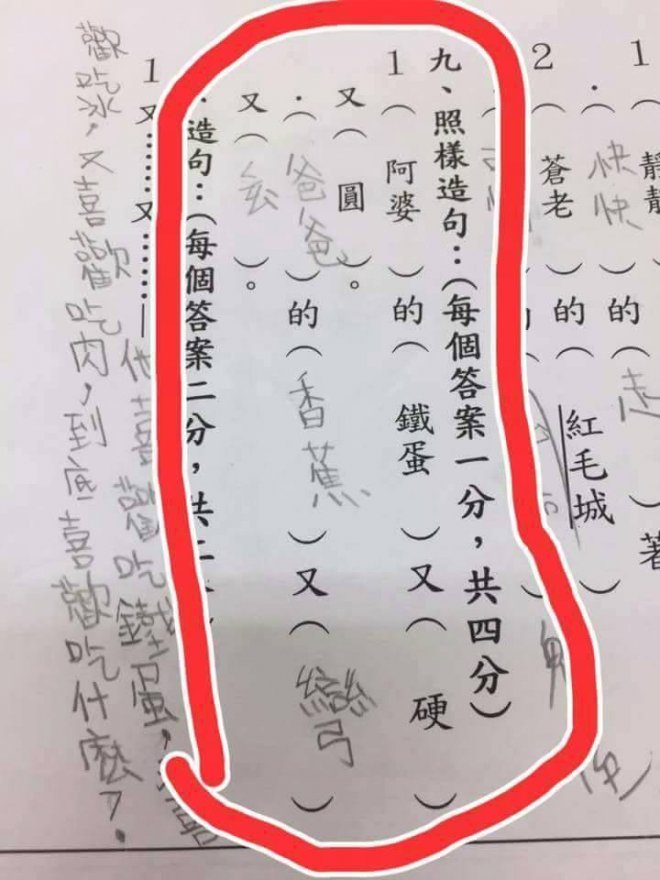 1 靜靜 ）著
（快快）的（走
2（蒼老）的（紅毛城）
九、照樣造句：（每個答案一分，共四分）
1（阿婆）的（鐵蛋）又（硬）
又（圓）。
．（爸爸）的（香蕉）又（彎）
又（ ）。
．造句：（每個答案二分，共二
1又……又……—他喜歡吃鐵蛋，
歡吃冰，又喜歡吃肉，到底喜歡吃什麼？